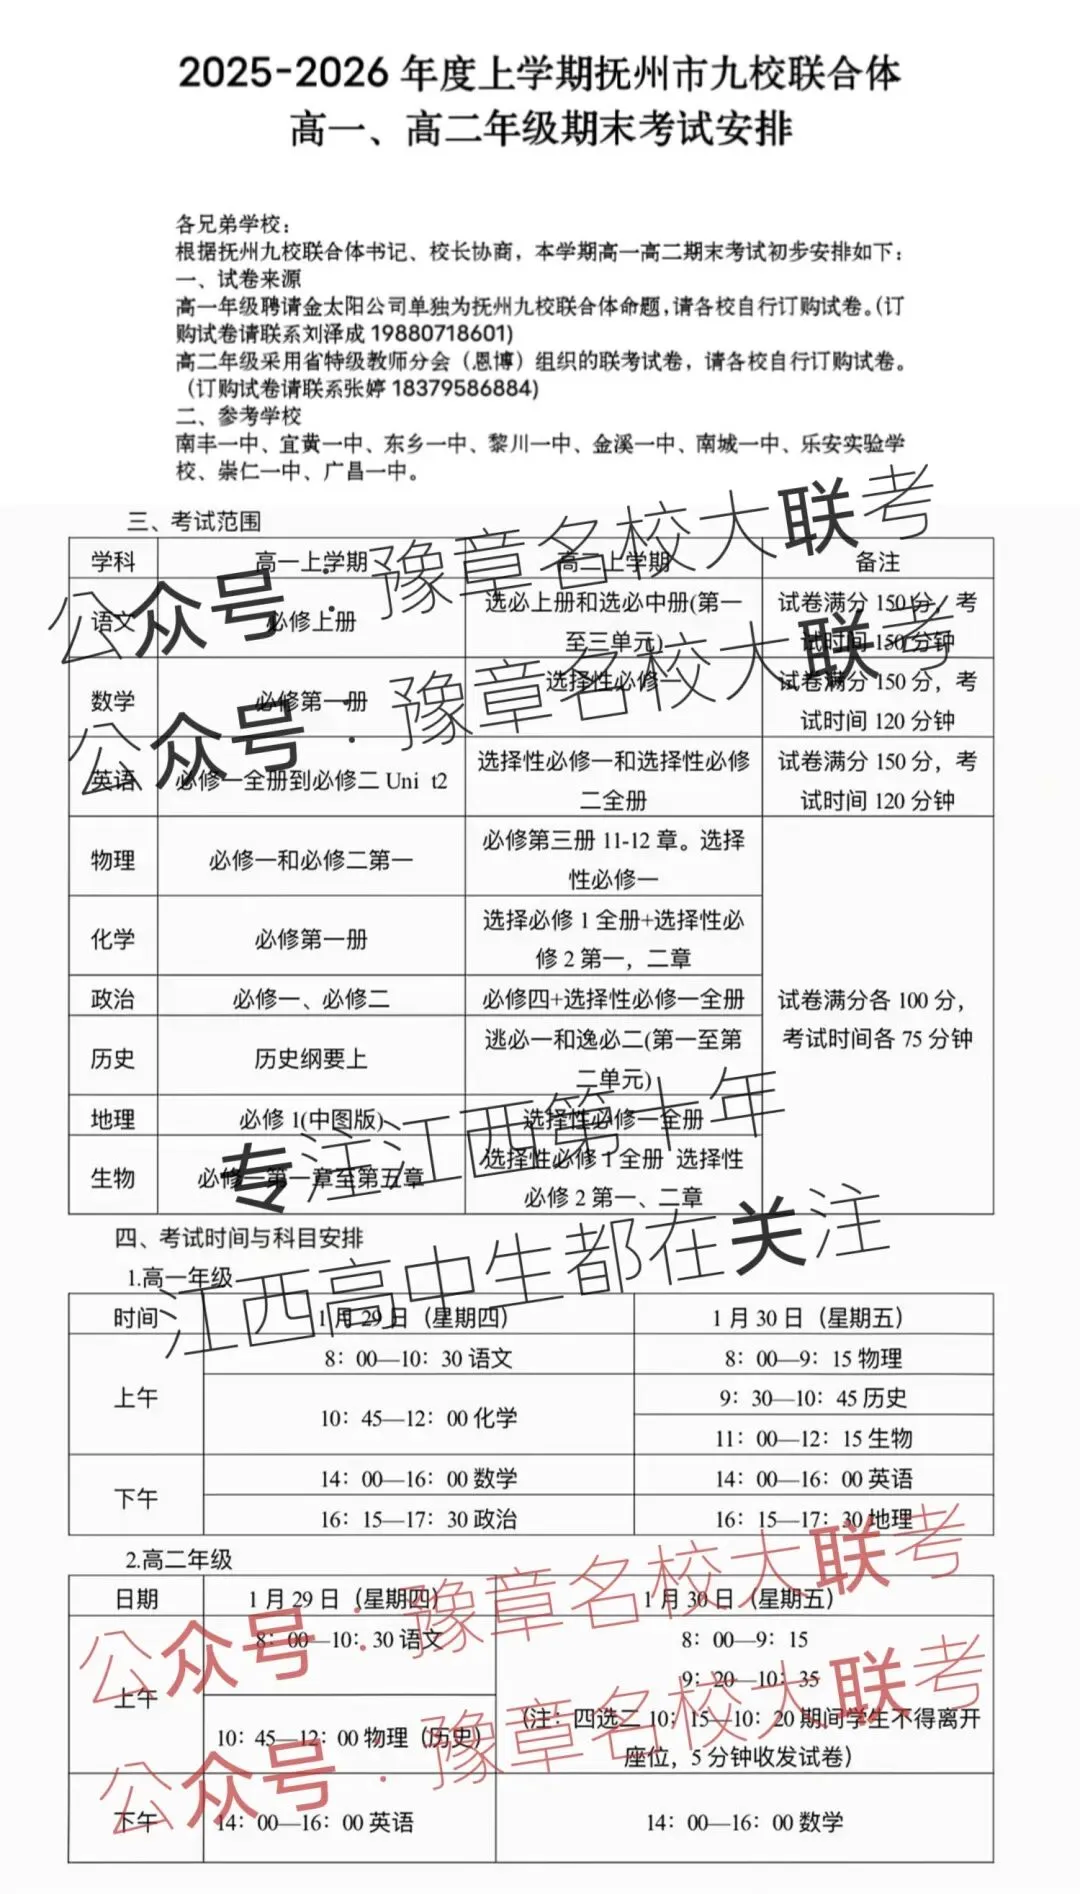 2025-2026 年度上学期抚州市九校联合体
高一、高二年级期末考试安排
各兄弟学校：
根据抚州九校联合体书记、校长协商，本学期高一高二期末考试初步安排如下：
一、试卷来源
高一年级聘请金太阳公司单独为抚州九校联合体命题，请各校自行订购试卷。（订
购试卷请联系刘泽成 19880718601）
高二年级采用省特级教师分会（恩博）组织的联考试卷，请各校自行订购试卷。
（订购试卷请联系张婷 18379586884）
二、参考学校
南丰一中、宜黄一中、东乡一中、黎川一中、金溪一中、南城一中、乐安实验学
校、崇仁一中、广昌一中。
三、考试范围
学科 高一上学期 高二上学期 备注
语文 必修上册 选必上册和选必中册(第一至三单元) 试卷满分 150 分，考试时间 150 分钟
数学 必修第一册 选择性必修一 试卷满分 150 分，考试时间 120 分钟
英语 必修一全册到必修二 Uni t2 选择性必修一和选择性必修二全册 试卷满分 150 分，考试时间 120 分钟
物理 必修一和必修二第一 必修第三册 11-12 章。选择性必修一
化学 必修第一册 选择必修 1 全册+选择性必修 2 第一，二章
政治 必修一、必修二 必修四+选择性必修一全册 试卷满分各 100 分，考试时间各 75 分钟
历史 历史纲要上 逃必一和逸必二(第一至第二单元)
地理 必修 1(中图版) 选择性必修一全册
生物 必修一第一章至第五章 选择性必修 1 全册 选择性必修 2 第一、二章
四、考试时间与科目安排
1.高一年级
时间 1 月 29 日（星期四） 1 月 30 日（星期五）
上午 8：00—10：30 语文 8：00—9：15 物理
10：45—12：00 化学 9：30—10：45 历史
11：00—12：15 生物
下午 14：00—16：00 数学 14：00—16：00 英语
16：15—17：30 政治 16：15—17：30 地理
2.高二年级
日期 1 月 29 日（星期四） 1 月 30 日（星期五）
上午 8：00—10：30 语文 8：00—9：15
9：20—10：35
10：45—12：00 物理（历史） （注：四选二 10：15—10：20 期间学生不得离开
座位，5 分钟收发试卷）
下午 14：00—16：00 英语 14：00—16：00 数学
公众号：豫章名校大联考
公众号：豫章名校大联考
专注江西第十年
江西高中生都在关注
公众号：豫章名校大联考
公众号：豫章名校大联考